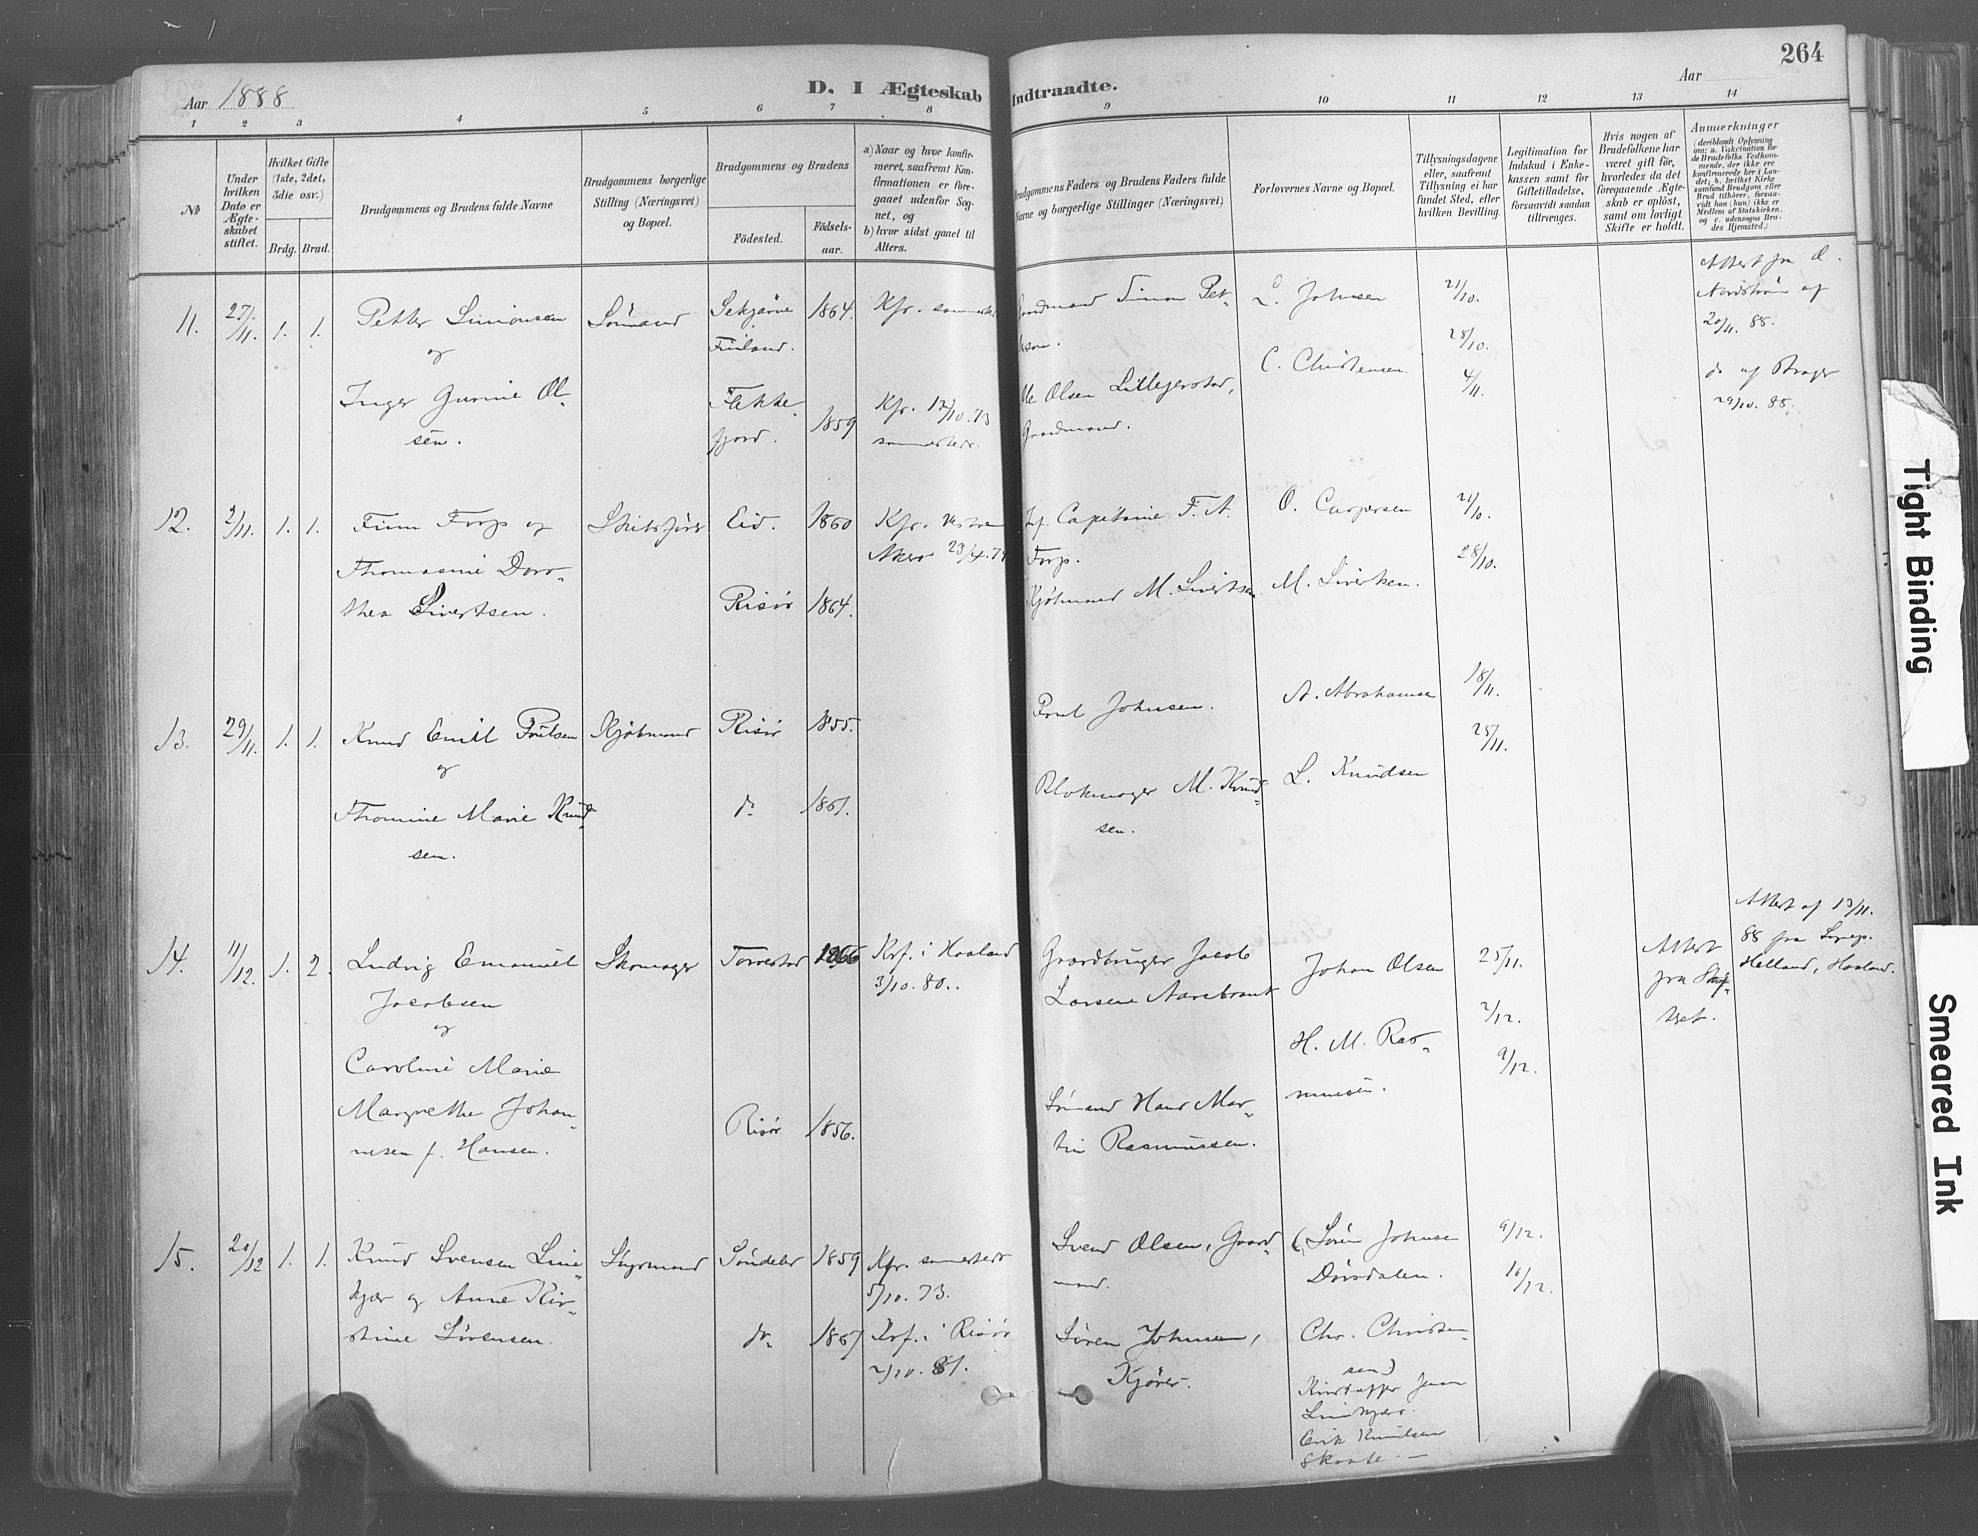 264
Aar 1888
D. I Ægteskab Indtraadte.
Aar
1 2 3 4 5 6 7 8 9 10 11 12 13 14
No
Under hvilken Dato er Ægteskabet stiftet.
Hvilket Gifte (1ste, 2det, 3die osv.)
Brdg. Brud.
Brudgommens og Brudens fulde Navne
Brudgommens borgerlige Stilling (Næringsvei) og Bopæl.
Brudgommens og Brudens
Födested.
Födsels-aar.
a) Naar og hvor konfirmeret, saafremt Konfirmationen er foregaaet udenfor Sognet, og
b) hvor sidst gaaet til Alters.
Brudgommens Faders og Brudens Faders fulde
Navne og borgerlige Stillinger (Næringsvei)
Forlovernes Navne og Bopæl.
Tillysningsdagene eller, saafremt Tillysning ei har fundet Sted, efter hvilken Bevilling.
Legitimation for Indskud i Enkekassen samt for Giftetilladelse, forsaavidt saadan tiltrænges.
Hvis nogen af Brudefolkene har været gift för, hvorledes da det foregaaende Ægteskab er oplöst, samt om lovligt Skifte er holdt.
Anmærkninger
(deriblandt Oplysning om: a. Vakcination for de Brudefolks Vedkommende, der ikke ere konfirmerede her i Landet; b. hvilket Kirkesamfund Brudgom eller Brud tilhører, forsaavidt han (hun) ikke er Medlem af Statskirken, og c. udensogns Brudes Hjemsted.)
11. 27/11. 1. 1.
Petter Simonsen
og
Inger Gurine Ol-
sen.
Sömand
Finland.
1864.
Flekke-
fjord.
1859
Kfr. 12/10.73
Gaardmand Simon Pet-
Ole Olsen Lillejerstad,
Gaardmand.
L. Johnsen
C. Christensen.
21/10.
28/10.
4/11.
Attest fra
Nordström af
20/11. 88.
do af Præger
29/10. 88.
12. 2/11. 1. 1.
Finn Forp og
Thomasine Doro-
thea Sivertsen.
Skibsförer
Eid. 1860
Risör 1864.
Kfr. Vestre
Aker 23/4.74
Capitaine F. A
Forp.
Kjöbmand M. Sivertsen
O. Caspersen
M. Sivertsen.
21/10.
28/10.
13. 29/11. 1. 1.
Knud Emil Poulsen
og
Thomine Marie Knud-
sen.
Kjöbmand
Risör 1855.
do 1861.
Poul Johnsen.
Blokmager M. Knud-
sen.
A. Abrahamsen
L. Knudsen
18/11.
25/11.
14. 11/12. 1. 2.
Ludvig Emanuel
Jacobsen
og
Caroline Marie
Margrethe Johan-
nesen f. Hansen.
Skomager
Torrestad 1866
Risör 1856.
Krf. i Haaland
3/10. 80.
Gaardbruger Jacob
Larsen Aarebrant
Sömand Hans Mar-
tin Rasmussen.
Johan Olsen
H. M. Ras-
mussen.
25/11.
2/12.
9/12.
Attest
fra Skif-
tret.
Attest af 13/11.
88 fra Sognep.
Helland, Haaland.
15. 20/12 1. 1.
Knud Svensen Lind-
kjær og Anne Kir-
stine Sörensen.
Styrmand
Söndeler 1859
do 1867
Kfr. sammesteds
5/10. 73.
Krf. i Risör
2/10. 81.
Svend Olsen, Gaard-
mand.
Sören Johnsen,
Kjörer.
Sören Johnsen
Dörsdalen.
Chr. Christen-
sen)
Kristoffer Jensen
Lindkjær.
Erik Knudsen
Skaate. —
9/12.
16/12.
Tight Binding
Smeared Ink